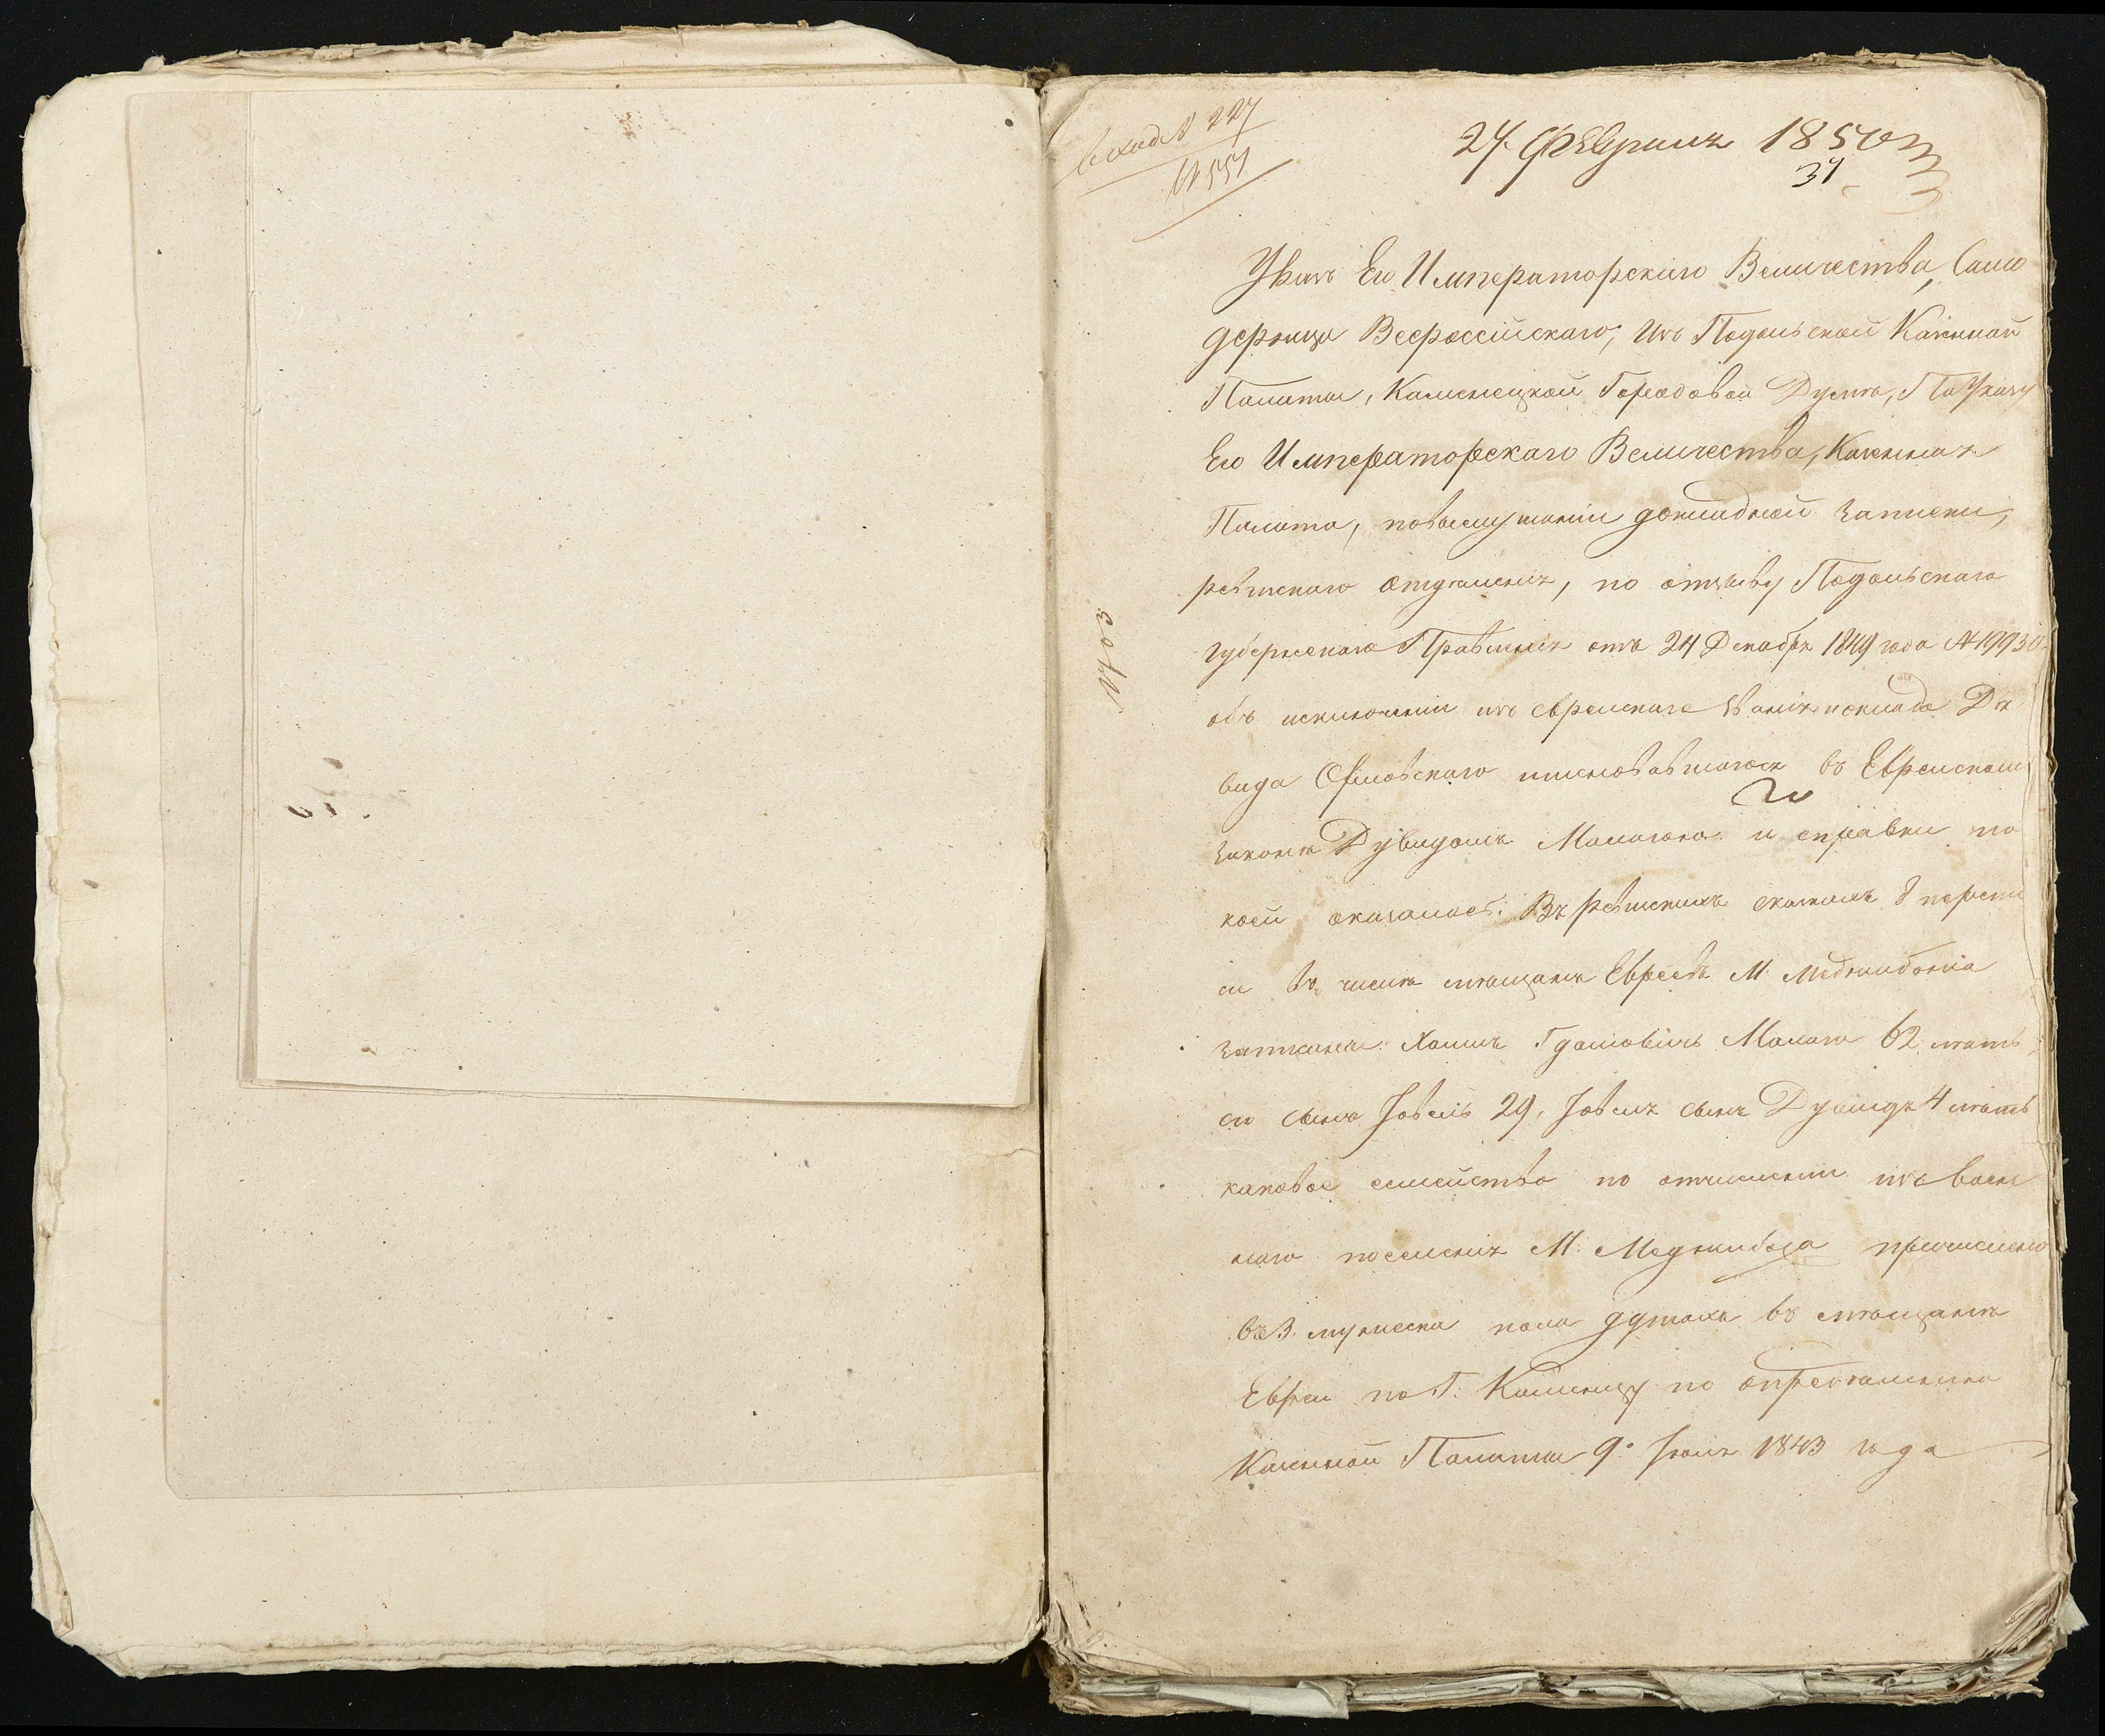 входя N 227
N 551
24. Февраля 1850
31
Указъ Его Императорскаго Величества, Само
держца Всероссійскаго, изъ Подольской Казенной
Палаты, Каменецкой Городовой Думѣ, По Указу
Его Императорскаго Величества, Казенная
Палата, по выслушаніи докладной записки,
ревизскаго отдѣленія, по отзыву Подольскаго
Губернскаго Правленія отъ 24 Декабря 1849 года N 19930
объ исключеніи изъ еврейскаго званія и оклада Да
вида именовавшагося въ Еврейскомъ
законѣ Дувидомъ Малаго и справки по
коей оказалось: Въ ревизскихъ сказкахъ 8 перепи
си въ числѣ мѣщанъ Евреевъ М. Меджибожа
записаны: Хаимъ Малаго 62 лѣтъ,
его сынъ Іовель 29, Іовеля сынъ Дувидъ 4 лѣтъ
каковое семейство по отчисленіи изъ воен
наго поселенія М. Меджибожа причислено
въ 3. мужеска пола душахъ въ мѣщане
Евреи по Г. Каменцу по опредѣленію
Казенной Палаты 9. Іюля 1843 года
N 403